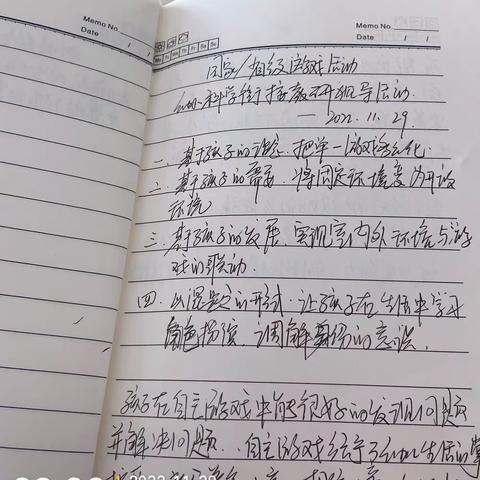 Memo No.
Date / /
Memo No.
Date / /
Mo Tu We Th Fr Sa Su
同室/班级游戏活动
科学街 教研指导活动.
— 2022. 11. 29.
一. 基于孩子的理念, 把单一游戏活化.
二. 基于孩子的需要, 将固定环境变为开放
环境
三. 基于孩子的发展, 实现室内外环境与游
戏的联动.
四. 以混龄的形式, 让孩子在生活中学习
角色扮演, 调解身份的意识.
孩子在自主游戏中能很好的发现问题
并解决问题. 自主游戏给予了幼儿生活的